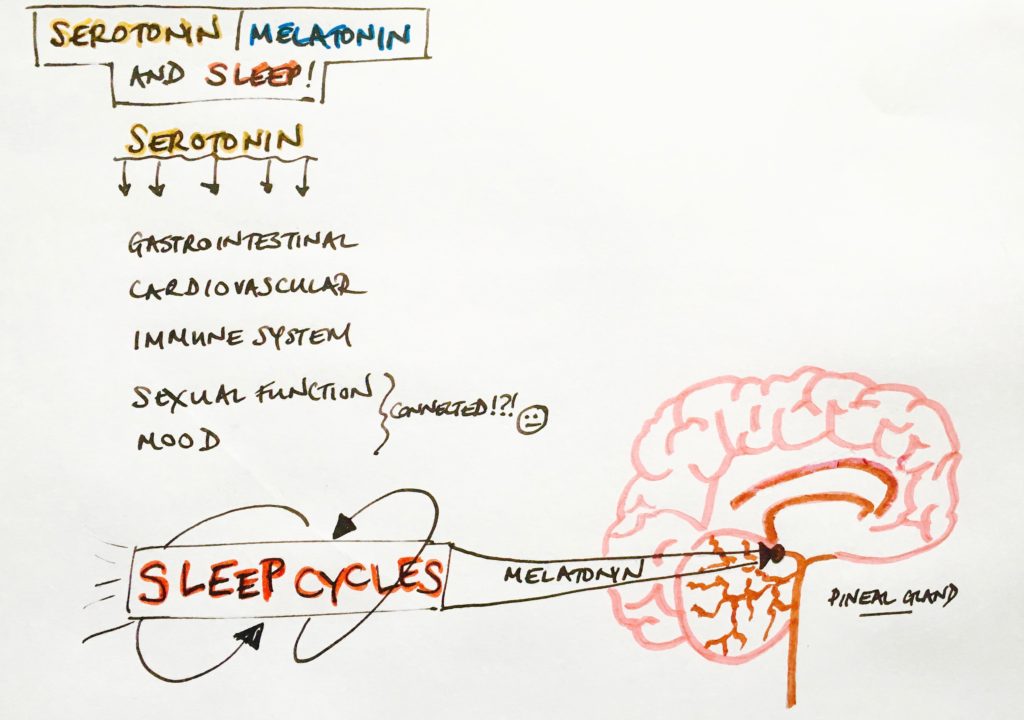 SEROTONIN | MELATONIN
AND SLEEP!
SEROTONIN
GASTROINTESTINAL
CARDIOVASCULAR
IMMUNE SYSTEM
SEXUAL FUNCTION
MOOD
CONNECTED!?!
SLEEP CYCLES
MELATONIN
PINEAL GLAND